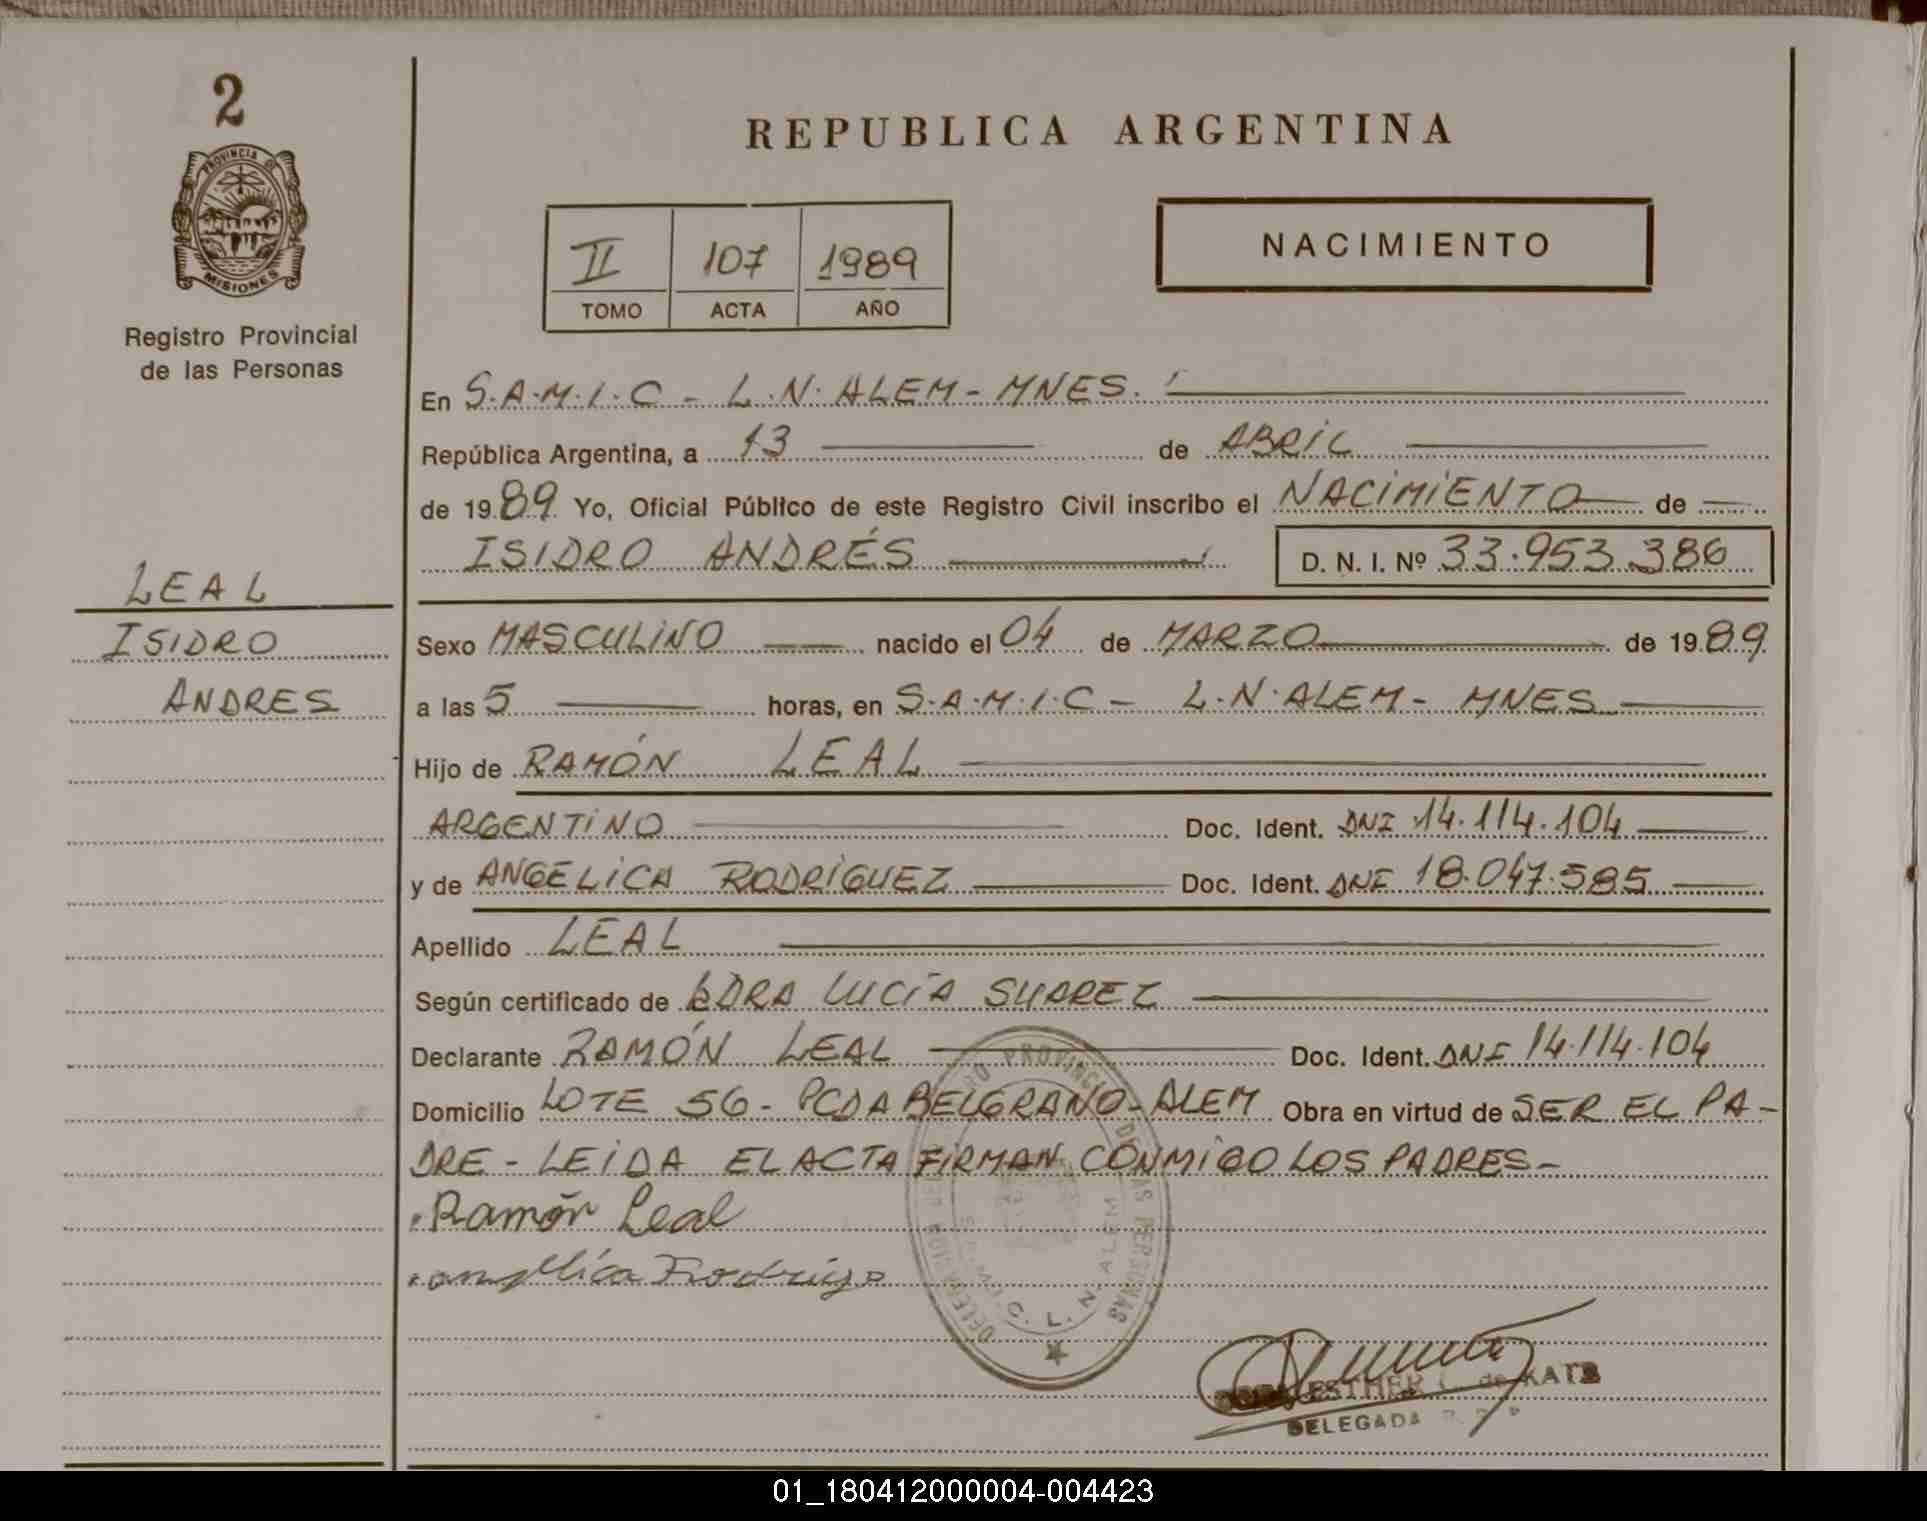 2
PROVINCIA DE
MISIONES
Registro Provincial
de las Personas
REPUBLICA ARGENTINA
II 107 1989
TOMO ACTA AÑO
NACIMIENTO
En S.A.M.I.C - L.N. ALEM - MNES.
República Argentina, a 13 de ABRIL
de 1989 Yo, Oficial Público de este Registro Civil inscribo el NACIMIENTO de
ISIDRO ANDRÉS D. N. I. Nº 33.953.386
LEAL
ISIDRO
ANDRES
Sexo MASCULINO nacido el 04 de MARZO de 1989
a las 5 horas, en S.A.M.I.C - L.N. ALEM - MNES
Hijo de RAMÓN LEAL
ARGENTINO Doc. Ident. DNI 14.114.104
y de ANGELICA RODRÍGUEZ Doc. Ident. DNI 18.047.585
Apellido LEAL
Según certificado de LDRA LUCÍA SUAREZ
Declarante RAMÓN LEAL Doc. Ident. DNI 14.114.104
Domicilio LOTE 56 - PCDA BELGRANO - ALEM Obra en virtud de SER EL PA-
DRE - LEIDA EL ACTA FIRMAN CONMIGO LOS PADRES -
Ramón Leal
PROVINCIAL DE LAS PERSONAS
L. N. ALEM
ESTHER de KATZ
DELEGADA
01_180412000004-004423